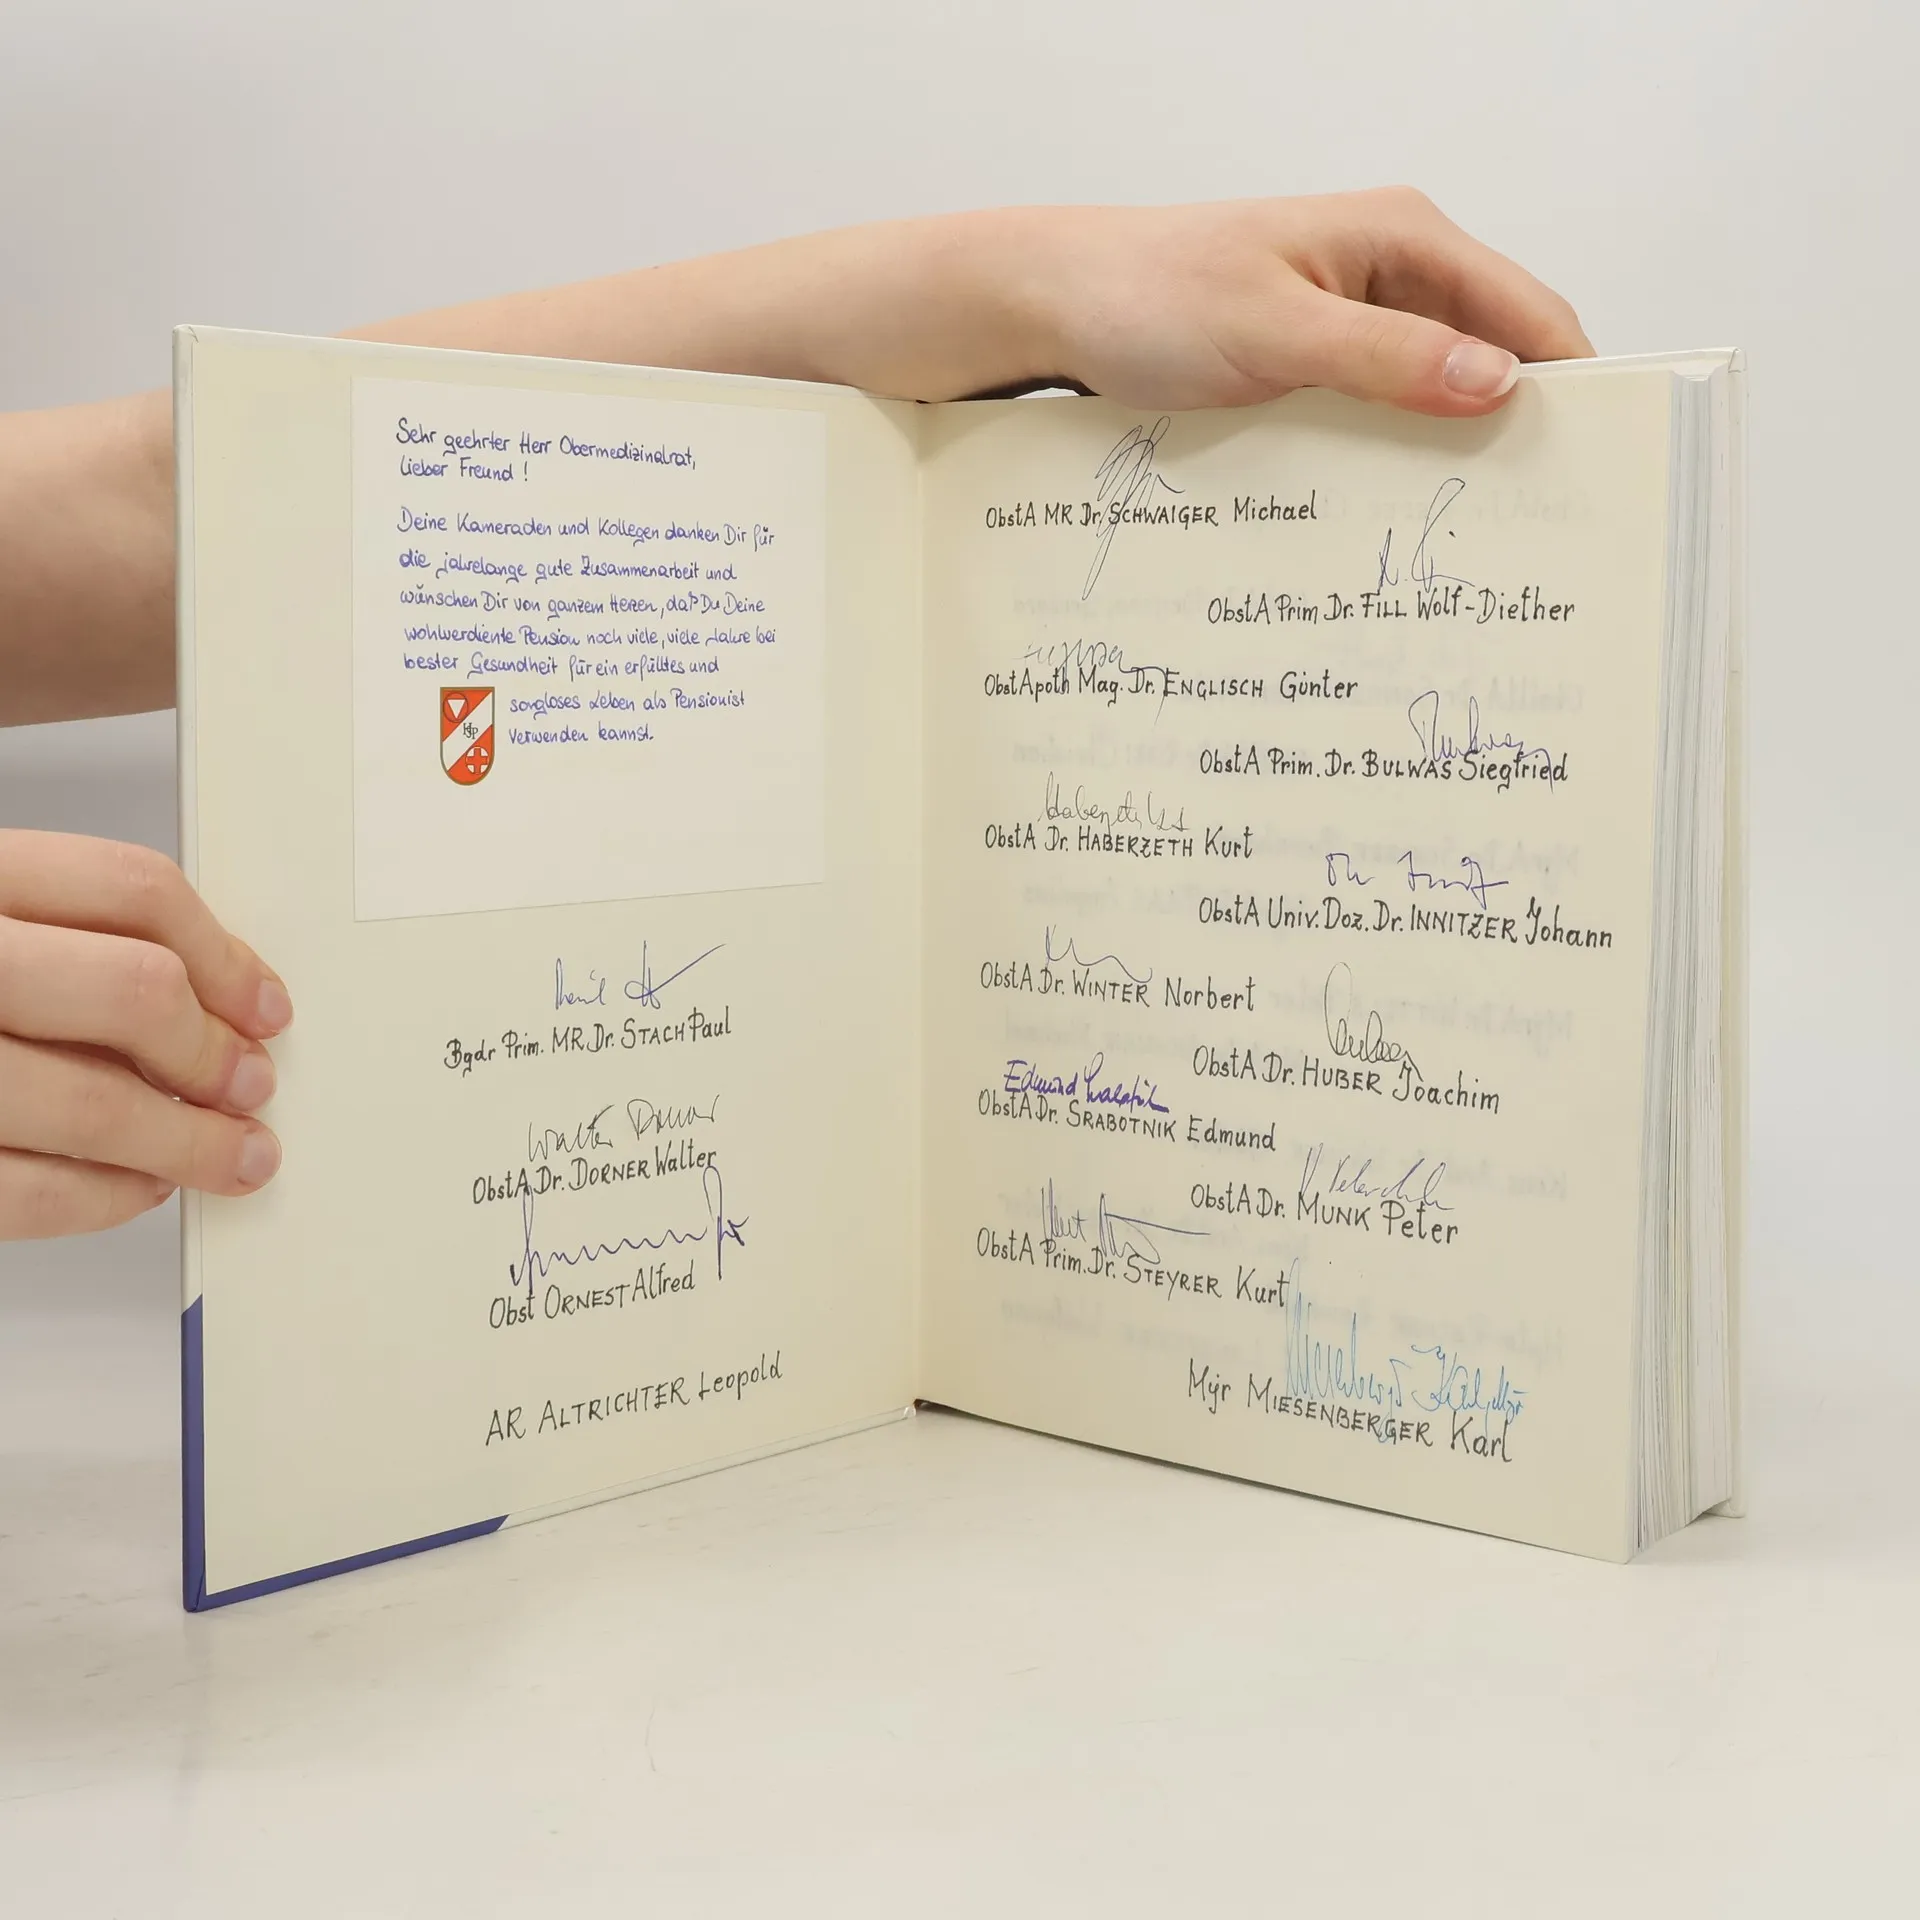 Sehr geehrter Herr Obermedizinalrat,
lieber Freund !
Deine Kameraden und Kollegen danken Dir für
die jahrelange gute Zusammenarbeit und
wünschen Dir von ganzem Herzen, daß Du Deine
wohlverdiente Pension noch viele, viele Jahre bei
bester Gesundheit für ein erfülltes und
sorgloses Leben als Pensionist
verwenden kannst.
HSP
Bgdr Prim. MR. Dr. STACH Paul
Walter Dorner
ObstA Dr. DORNER Walter
Obst ORNEST Alfred
AR ALTRICHTER Leopold
ObstA MR Dr. SCHWAIGER Michael
ObstA Prim Dr. FILL Wolf-Diether
ObstApoth Mag. Dr. ENGLISCH Günter
ObstA Prim. Dr. BULWAS Siegfried
ObstA Dr. HABERZETH Kurt
ObstA Univ. Doz. Dr. INNITZER Johann
ObstA Dr. WINTER Norbert
ObstA Dr. HUBER Joachim
Edmund
ObstA Dr. SRABOTNIK Edmund
ObstA Dr. MUNK Peter
ObstA Prim. Dr. STEYRER Kurt
Mjr MIESENBERGER Karl